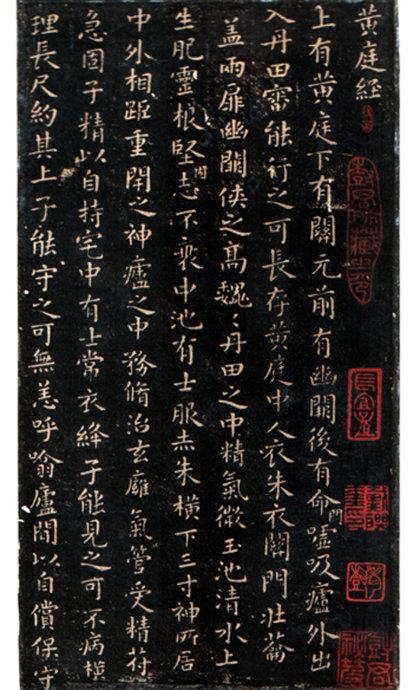 黃庭経
上有黃庭下有關元前有幽闕後有命門嘘吸廬外出
入丹田審能行之可長存黃庭中人衣朱衣關門壯籥
蓋兩扉幽闕俠之高魏〻丹田之中精氣微玉池清水上
生肥靈根堅志不衰中池有士服赤朱橫下三寸神所居
中外相距重閇之神廬之中務脩治玄廱氣管受精苻
急固子精以自持宅中有士常衣絳子能見之可不病橫
理長尺約其上子能守之可無恙呼噏廬間以自償保守